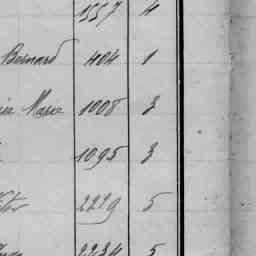 1557 4
Bernard 404 1
Marie 1008 3
1095 3
2229 5
2234 5